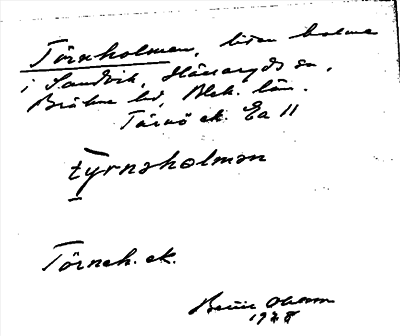 Törnholmen, liten holme
i Sandvik, Hällaryds sn,
Bräkne hd, Blek. län.
Tärnö ek. Ea 11
tyrnəholmən
Törneh. ek.
Olsson
1928